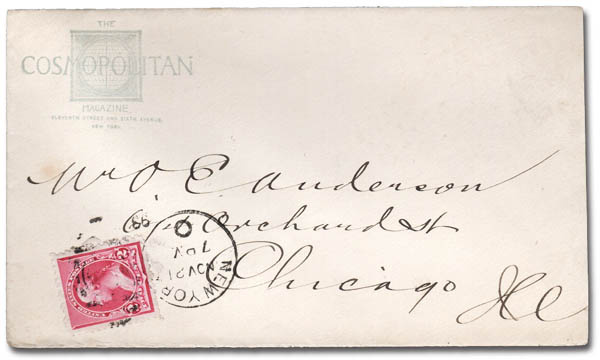 THE
COSMOPOLITAN
MAGAZINE,
ELEVENTH STREET AND SIXTH AVENUE,
NEW YORK.
Mr O E Anderson
Orchard St
Chicago Ill
NEW YORK
NOV 21
7 PM